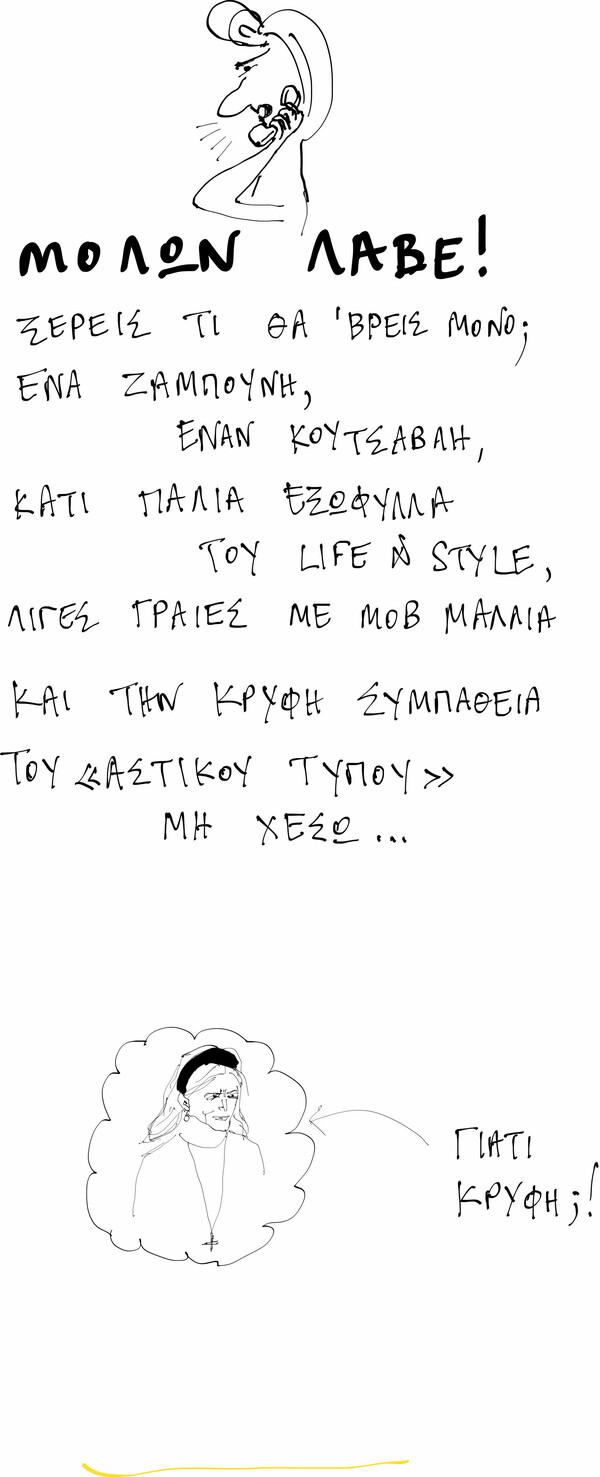 ΜΟΛΩΝ ΛΑΒΕ!
ΞΕΡΕΙΣ ΤΙ ΘΑ 'ΒΡΕΙΣ ΜΟΝΟ;
ΕΝΑ ΖΑΜΠΟΥΝΗ,
ΕΝΑΝ ΚΟΥΤΣΑΒΛΗ,
ΚΑΤΙ ΠΑΛΙΑ ΕΞΩΦΥΛΛΑ
ΤΟΥ LIFE N STYLE,
ΛΙΓΕΣ ΓΡΑΙΕΣ ΜΕ ΜΟΒ ΜΑΛΛΙΑ
ΚΑΙ ΤΗΝ ΚΡΥΦΗ ΣΥΜΠΑΘΕΙΑ
ΤΟΥ «ΑΣΤΙΚΟΥ ΤΥΠΟΥ»
ΜΗ ΧΕΣΩ...
ΓΙΑΤΙ
ΚΡΥΦΗ;!